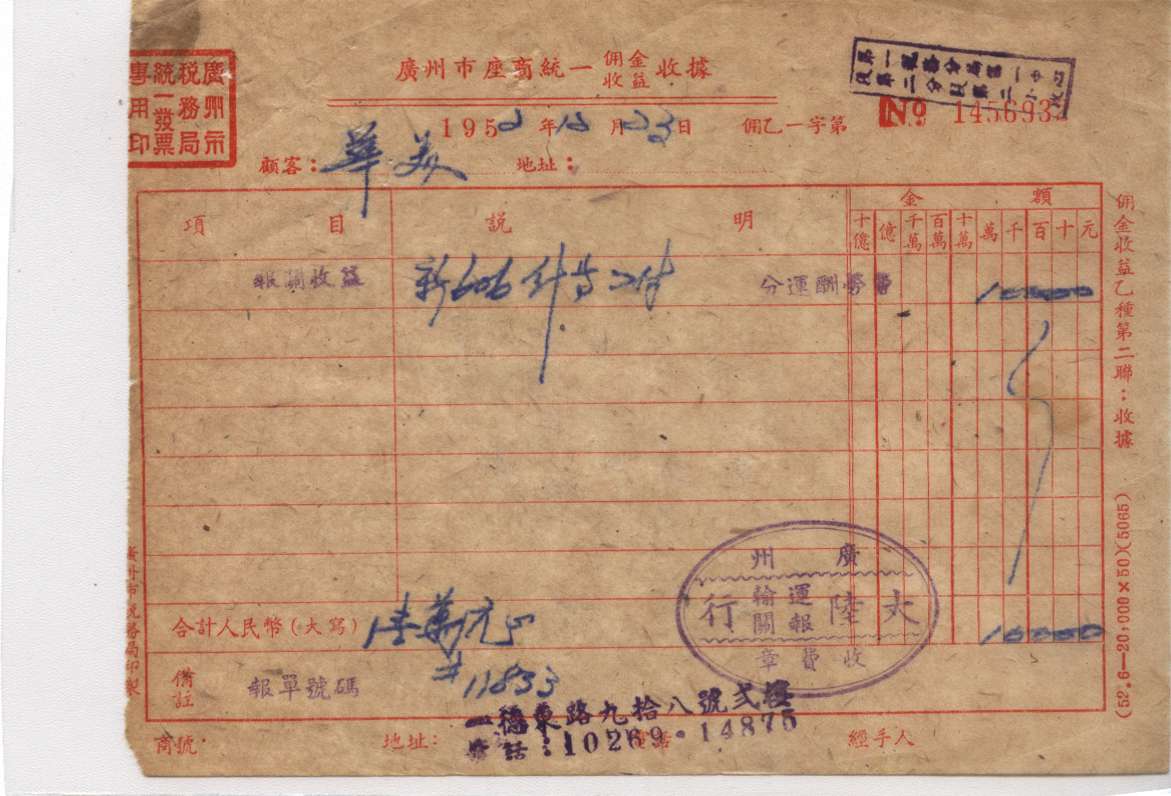 廣州市稅務局統一發票專用印
廣州市座商統一佣金收益收據
第一稅務分局第一中心
段第二分段第二小
№ 145693
195 年 月 23日 佣乙一字第
顧客：華美 地址：
項目 說明 金額
十億 億 千萬 百萬 十萬 萬 千 百 十 元
報關收益 新606 分運酬勞費 10000
合計人民幣(大寫) 萬元 10000
備註 報單號碼 #11833
廣州
大陸運輸報關行
收費章
一德東路九拾八號弍樓
電話：10269·14875
商號 地址： 電話 經手人
佣金收益乙種第二聯：收據
(52.6—20,000×50)(5065)
廣州市稅務局印製